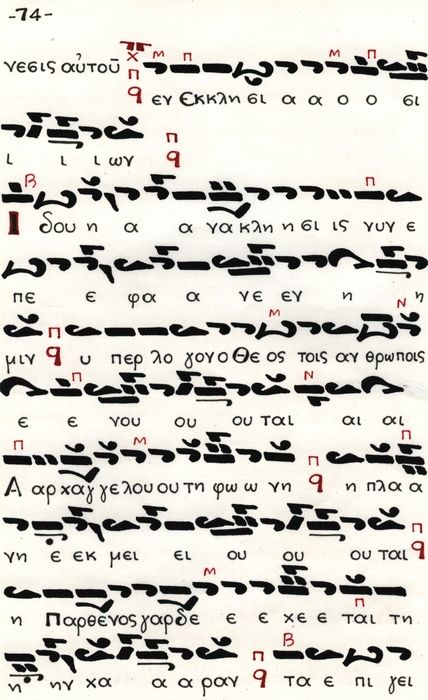 -74-
νεσις αὐτοῦ εν Εκκλη σι α α ο ο σι
ι ι ι ων
Ι δου η α α να κλη η σι ις νυν ε
πε ε φα α νε εν η η
μιν υ περ λο γον ο Θε ος τοις αν θρωποις
ε ε νου ου ου ται αι αι
Α αρ χαγ γε λου ου τη φω ω νη η πλα α
νη ε εκ μει ει ου ου ου ται
η Παρθενος γαρ δε ε ε χε ε ται τη
η ην χα α α ραν τα ε πι γει